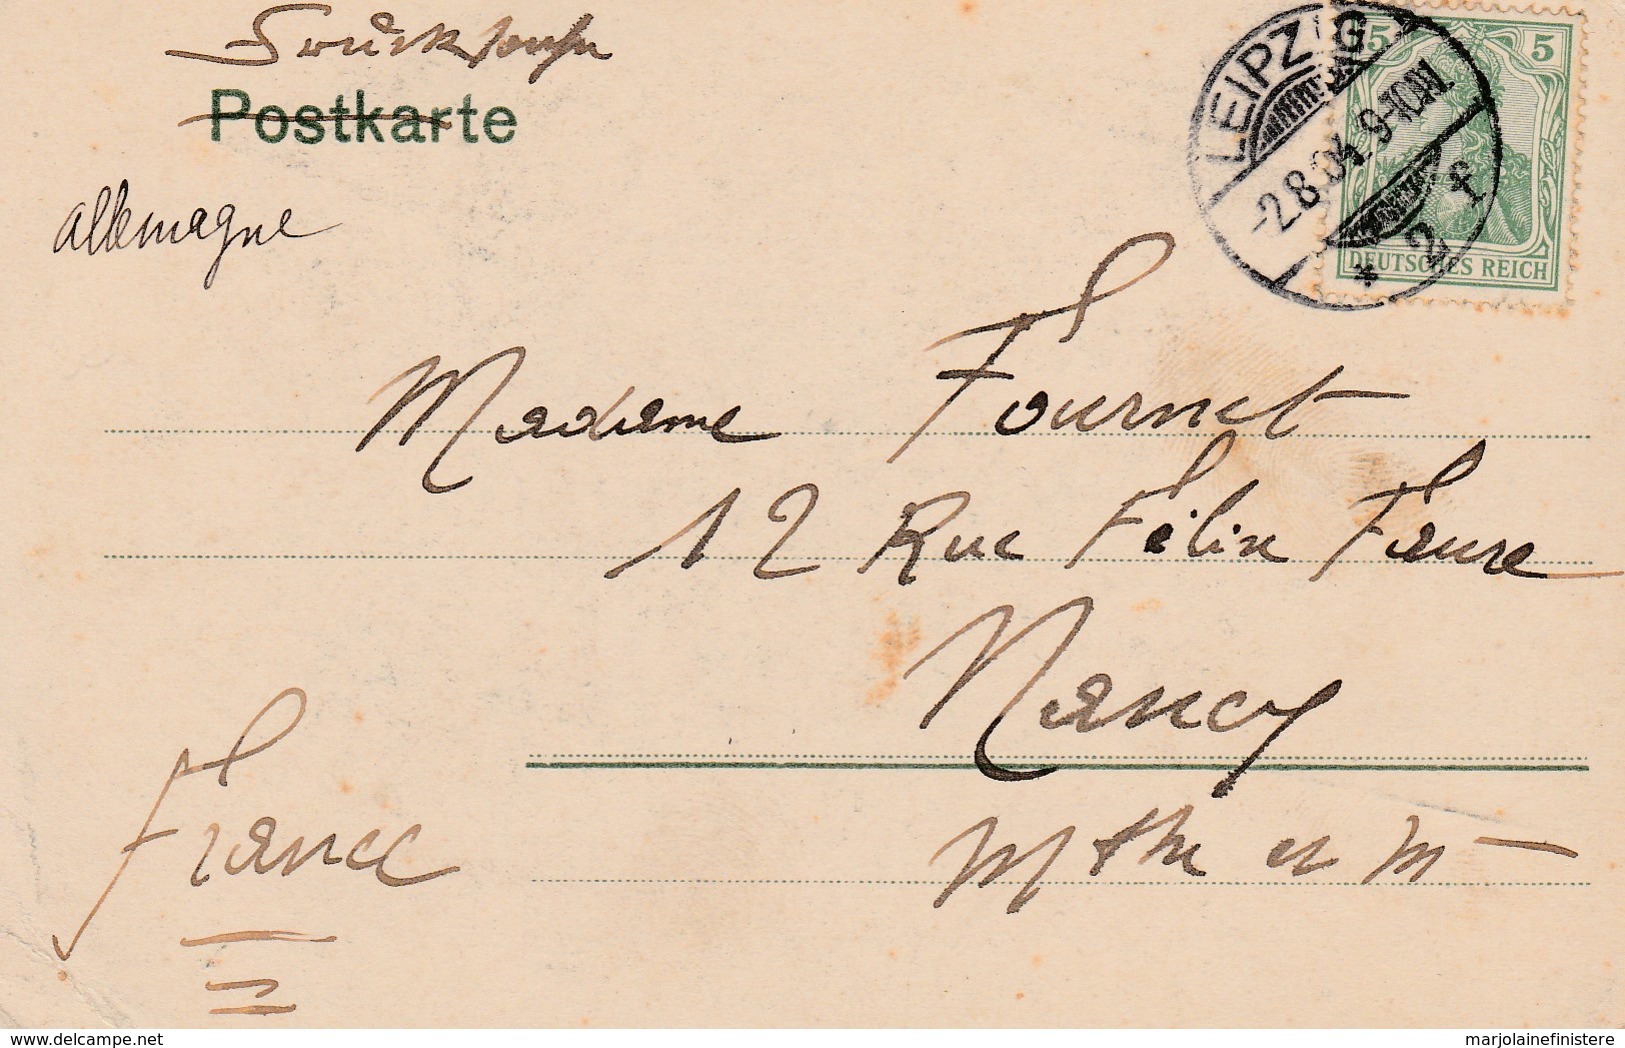 Drucksache
Postkarte
allemagne
LEIPZIG
-2.8.04. 9-10N.
* 2 f
5 5
DEUTSCHES REICH
Madame Fournet
12 Rue Félix Faure
Nancy
Mthe et M
France
delcampe.net
marjolainefinistere